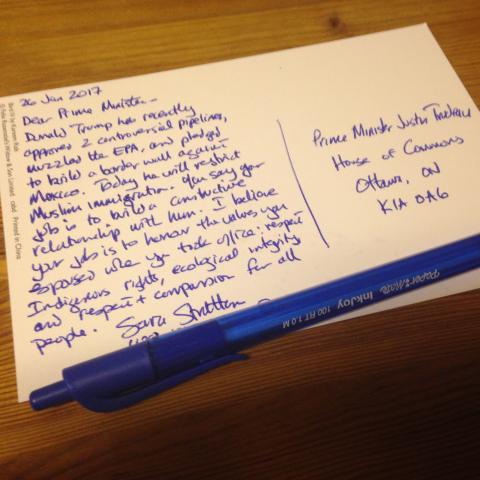 26 Jan 2017
Dear Prime Minister -
Donald Trump has recently
approved 2 controversial pipelines,
muzzled the EPA, and pledged
to build a border wall against
Mexico. Today he will restrict
Muslim immigration. You say your
job is to build a constructive
relationship with him. I believe
your job is to honour the values you
espoused when you took office: respect
Indigenous rights, ecological integrity
and respect + compassion for all
people. Sara Stratton
Prime Minister Justin Trudeau
House of Commons
Ottawa, ON
K1A 0A6
Printed in China
PaperMate InkJoy 100 RT 1.0 M